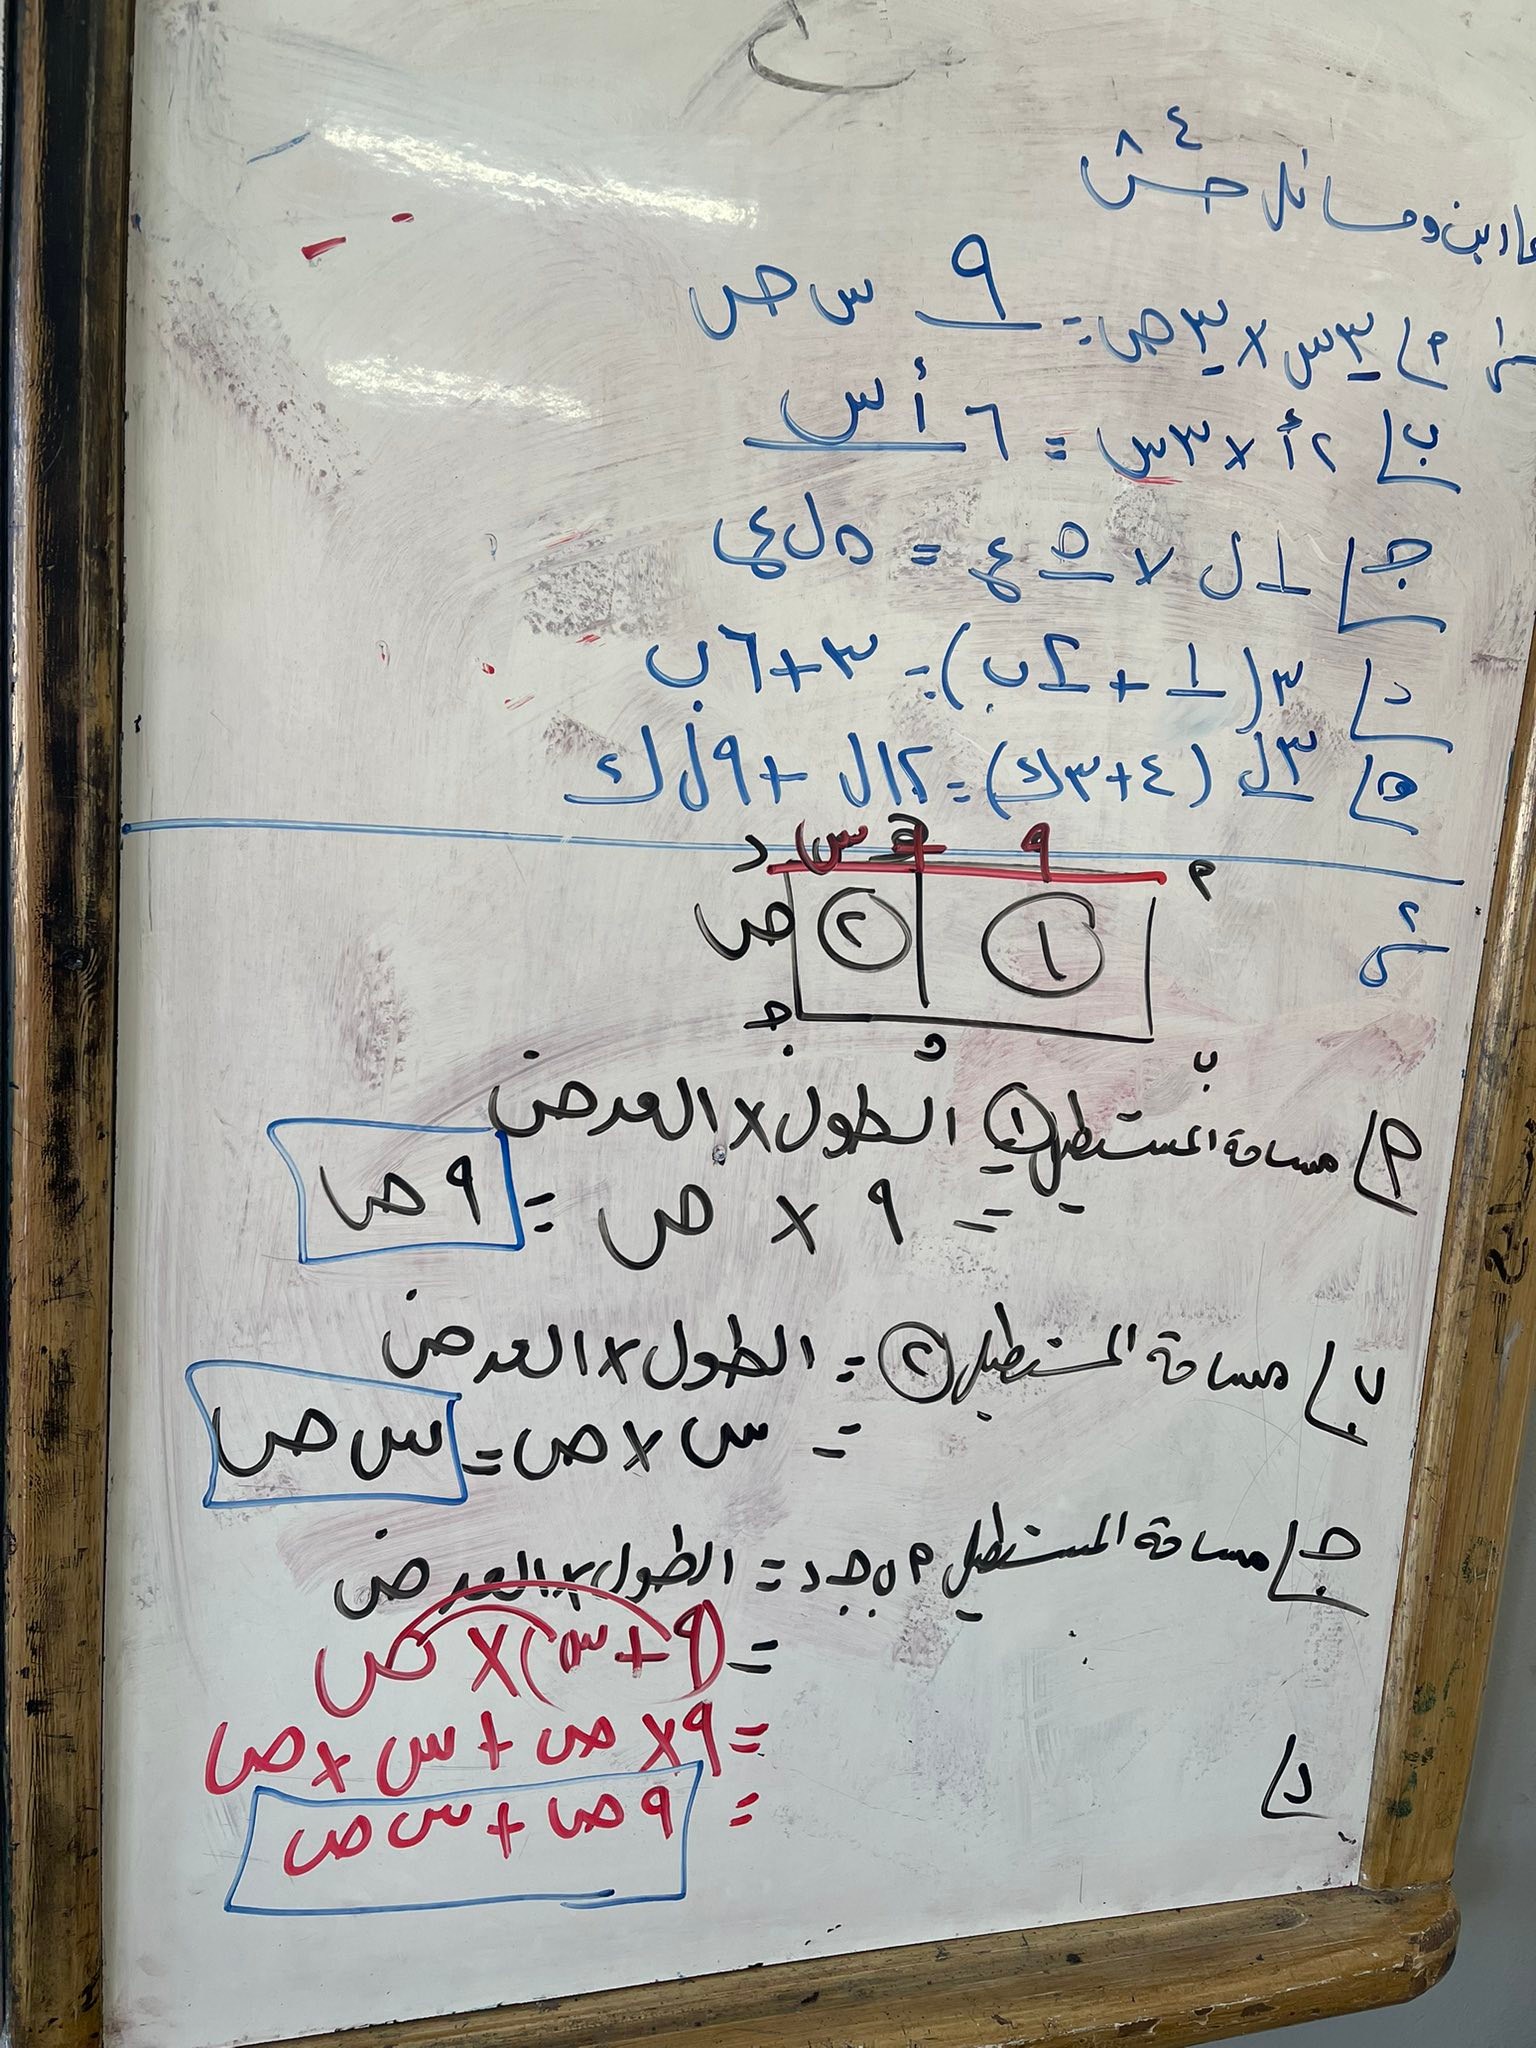 تمارين ومسائل ص ٤٨
س١ أ] ٣س × ٣ص = ٩ س ص
ب] ٢أ × ٣س = ٦ أ س
ج] ١ ل × ٥ ع = ٥ ل ع
د] ٣(١ + ٢ب) = ٣ + ٦ب
هـ] ٣ل (٤ + ٣ك) = ١٢ل + ٩ل ك
س٢
أ ٩ + س د
١ ٢ ص
ب و جـ
أ] مساحة المستطيل ١ = الطول × العرض
= ٩ × ص = ٩ص
ب] مساحة المستطيل ٢ = الطول × العرض
= س × ص = س ص
جـ] مساحة المستطيل أ ب جـ د = الطول × العرض
= (٩ + س) × ص
= ٩ × ص + س × ص
= ٩ص + س ص
د]